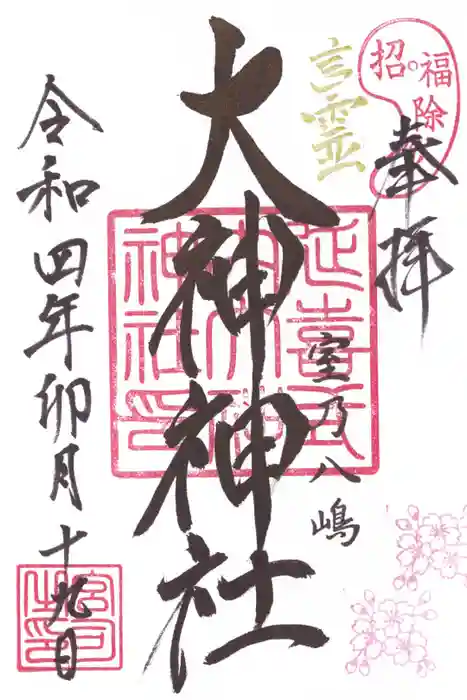 奉拝
招福除
言霊
室乃八嶋
大神神社
延喜式
大神
神社印
令和四年卯月十九日
宮司之印